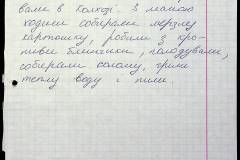 вали в колгосі. З мамою
ходили собирали мерзлу
картошку, робили з кро-
пиви блинчики, голодували,
собирали солому, гріли
теплу воду і пили.